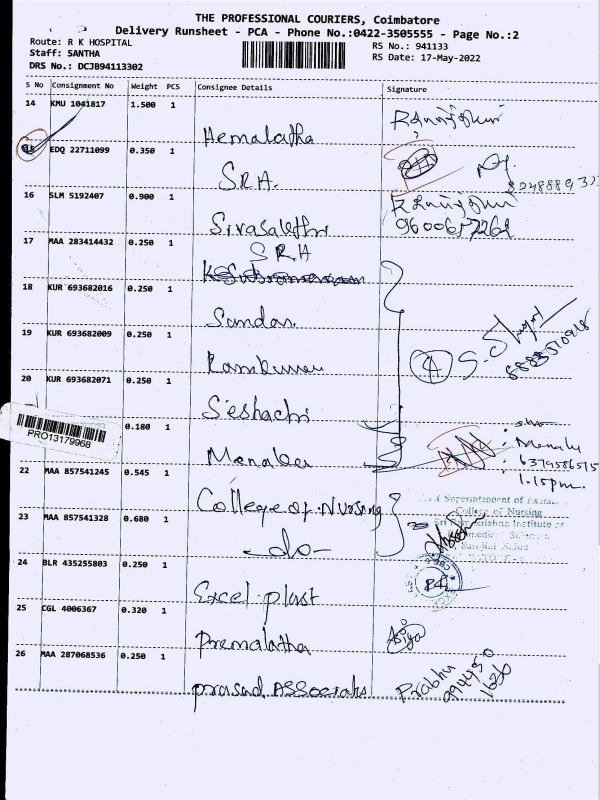 THE PROFESSIONAL COURIERS, Coimbatore
Delivery Runsheet - PCA - Phone No.:0422-3505555 - Page No.:2
Route: R K HOSPITAL
RS No.: 941133
Staff: SANTHA
RS Date: 17-May-2022
DRS No.: DCJB94113302
S No Consignment No Weight PCS Consignee Details Signature
14 KMU 1041817 1.500 1
Hemalatha
15 EDQ 22711099 0.350 1
S.R.H.
16 SLM 5192407 0.900 1
9600657262
17 MAA 283414432 0.250 1
S R H
18 KUR 693682016 0.250 1
Sundar.
19 KUR 693682009 0.250 1
Ramkumar
4
20 KUR 693682071 0.250 1
Seshachi
PRO13179968
0.180 1
6379586515
1.15pm.
22 MAA 857541245 0.545 1
College of Nursing
College of Nursing
23 MAA 857541328 0.680 1
-do-
24 BLR 435255803 0.250 1
Excel plast
25 CGL 4006367 0.320 1
Premalatha
26 MAA 287068536 0.250 1
Prasad Associates
Prabhu